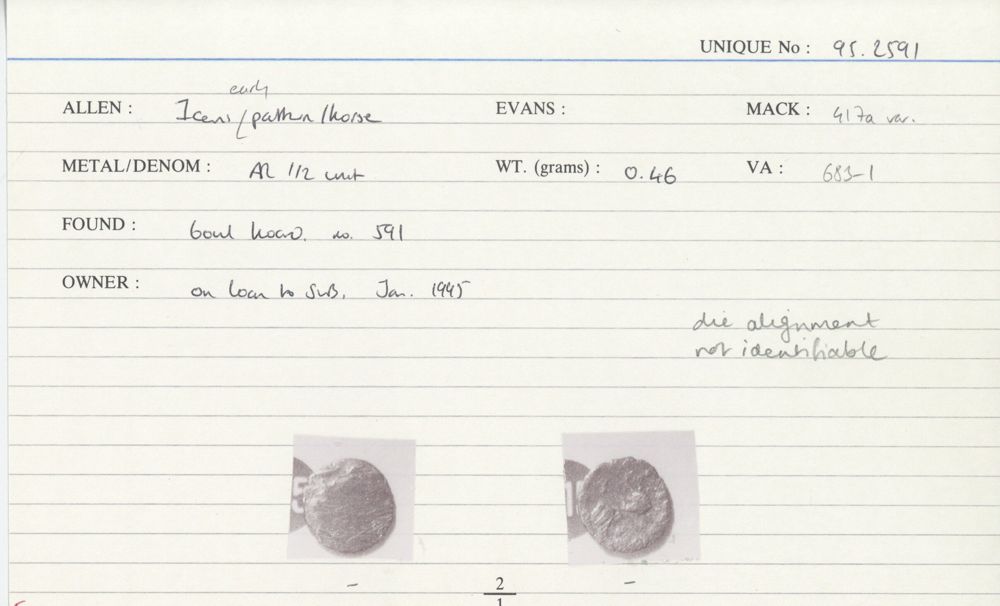 UNIQUE No : 95.2591
early
ALLEN : Iceni/pattern/horse EVANS : MACK : 417a var.
METAL/DENOM : AR 1/2 unit WT. (grams) : 0.46 VA : 683-1
FOUND : hoard. no. 591
OWNER : on loan to Jan. 1995
die alignment
not identifiable
5 1
– 2 –
1